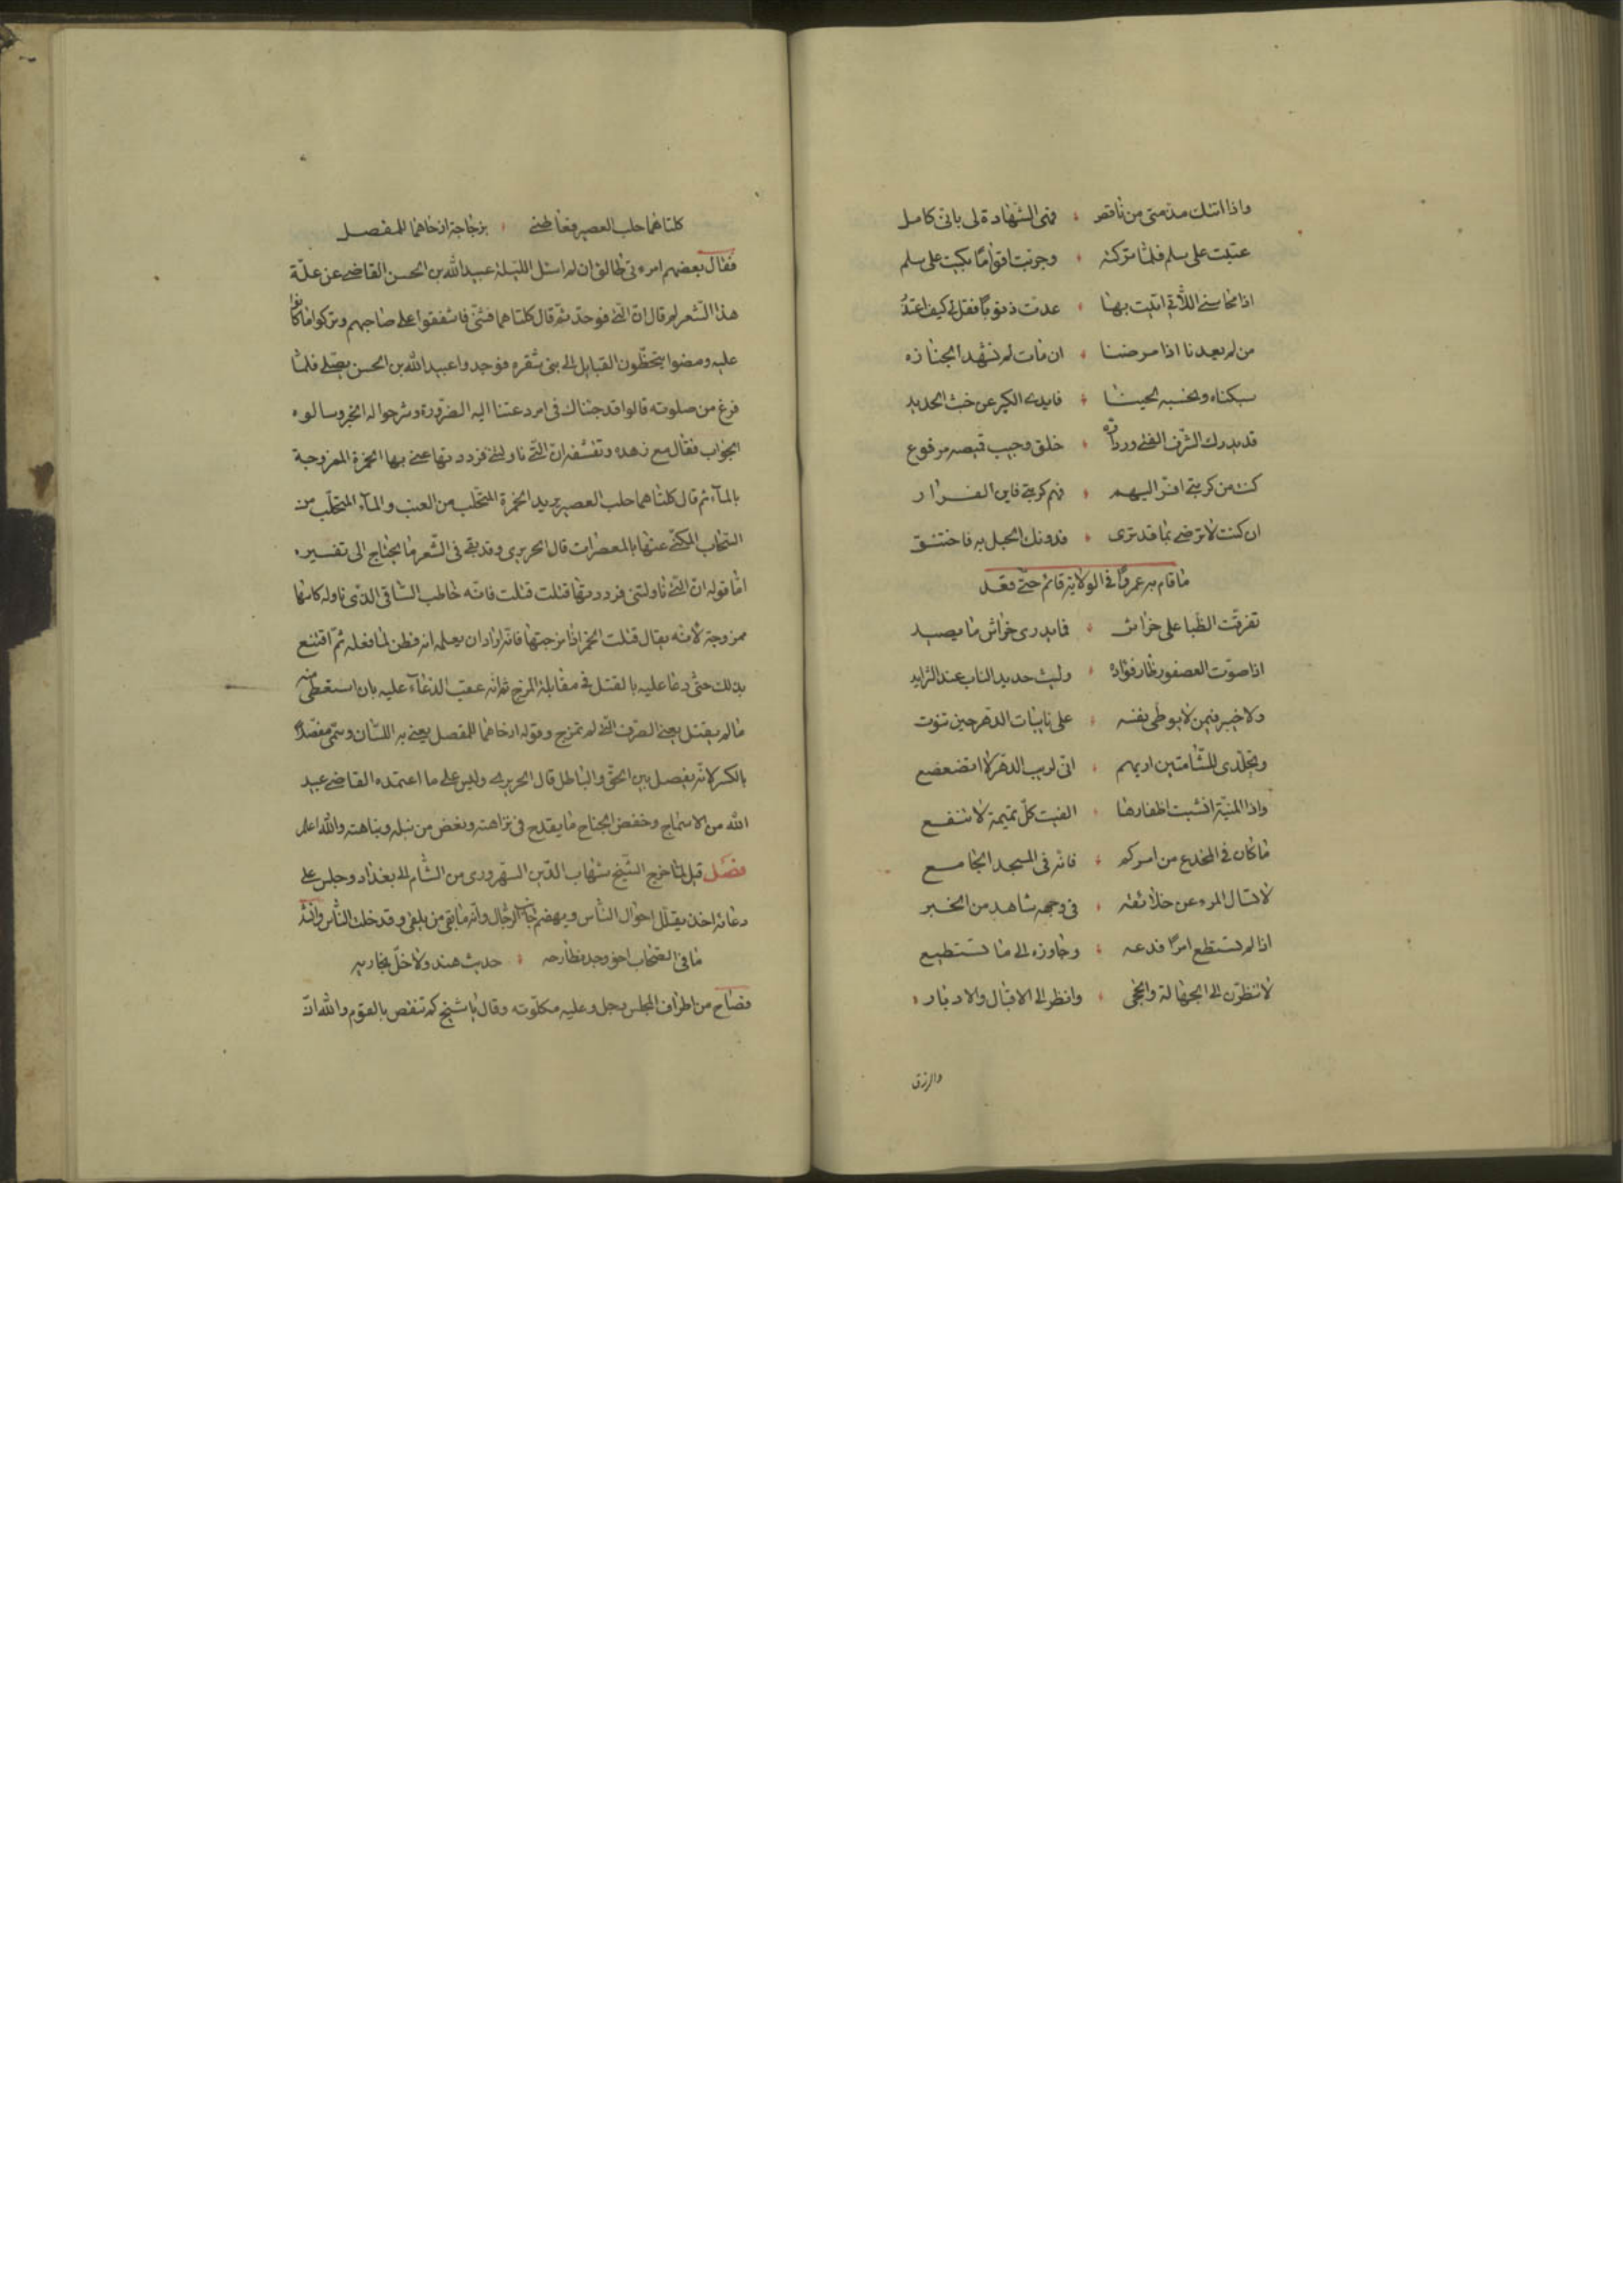 واذا اتتك مذمتى من ناقص فهى الشهادة لى بانى كامل
عتبت على سلم فلما تركته وجربت اقواما بكيت على سلم
اذا محاسنى اللاتى اتيت بها عدت ذنوبا فقل لى كيف اعتذر
من لم يعدنا اذا مرضنا ان مات لم نشهد الجنازه
سبكناه ونحسبه لجينا فابدى الكير عن خبث الحديد
قد يدرك الشرف الفتى ورداؤه خلق وجيب قميصه مرفوع
كنت من كربتى افر اليهم فهم كربتى فاين الفرار
ان كنت لا ترضى بما قد ترى فدونك الحبل به فاختنق
ما قام عمرو فى الولاية قائم حتى قعد
تفرقت الظبا على خراش فما يدرى خراش ما يصيد
اذا صوت العصفور طار فؤاده وليث حديد الناب عند الثرايد
ولا خير فيمن لا يوطى نفسه على نايبات الدهر حين تنوب
وتجلدى للشامتين اريهم انى لريب الدهر لا اتضعضع
واذا المنية انشبت اظفارها الفيت كل تميمة لا تنفع
ما كان فى المخدع من امركم فانه فى المسجد الجامع
لا تسال المرء عن خلائقه فى وجهه شاهد من الخبر
اذا لم تستطع امرا فدعه وجاوزه الى ما تستطيع
لا تنظرن الى الجهالة والحجى وانظر الى الاقبال والادبار
والرزق
كلتاهما حلب العصير فعاطنى بزجاجة ارخاهما للمفصل
فقال بعضهم امرءتى طالق ان لم اسئل الليلة عبيد الله بن الحسن القاضى عن علة
هذا الشعر لم قال ان التى فوحد ثم قال كلتاهما فثنى فاشفقوا على صاحبهم وتركوا ما كانوا
عليه ومضوا يتخطون القبايل الى بنى شقره فوجدوا عبيد الله بن الحسن يصلى فلما
فرغ من صلوته قالوا قد جئناك فى امر دعتنا اليه الضرورة وشرحوا له الخبر وسالوه
الجواب فقال مع زهده وتقشفه ان التى ناولتنى فرددتها عنى بها الخمرة الممزوجة
بالمآء ثم قال كلتاهما حلب العصير يريد الخمرة المتحلب من العنب والمآء المتحلب من
السحاب المكنى عنها بالمعصرات قال الحريرى وقد بقى فى الشعر ما يحتاج الى تفسيره
اما قوله ان التى ناولتنى فرددتها قتلت قتلت فانه خاطب الساقى الذى ناوله كاسها
ممزوجة لانه يقال قتلت الخمر اذا مزجتها فانه اراد ان يعلمه انه فطن لما فعله ثم اقتنع
بذلك حتى دعا عليه بالقتل فى مقابلة المزج ثم انه عقب الدعآء عليه بان استعطى منه
ما لم يقتل يعنى الصرف التى لم تمزج وقوله ارخاهما للمفصل يعنى به اللسان وسمى مفصلا
بالكسر لانه يفصل بين الحق والباطل قال الحريرى وليس على ما اعتمده القاضى عبيد
الله من الاسماح وخفض الجناح ما يقدح فى نزاهته ويغض من نبله ونباهته والله اعلم
فصل قيل لما خرج الشيخ شهاب الدين السهروردى من الشام الى بغداد وجلس على
دعائه اخذ يقلل احوال الناس ويهضم جانب الرجال وانه ما بقى من يلفى وقد خلت الناس وانشد
ما فى الصحاب اخو وجد نطارحه حديث هند ولا خل نجاريه
فصاح من اطراف المجلس رجل وعليه مكلوته وقال يا شيخ كم تنقص بالقوم والله ان